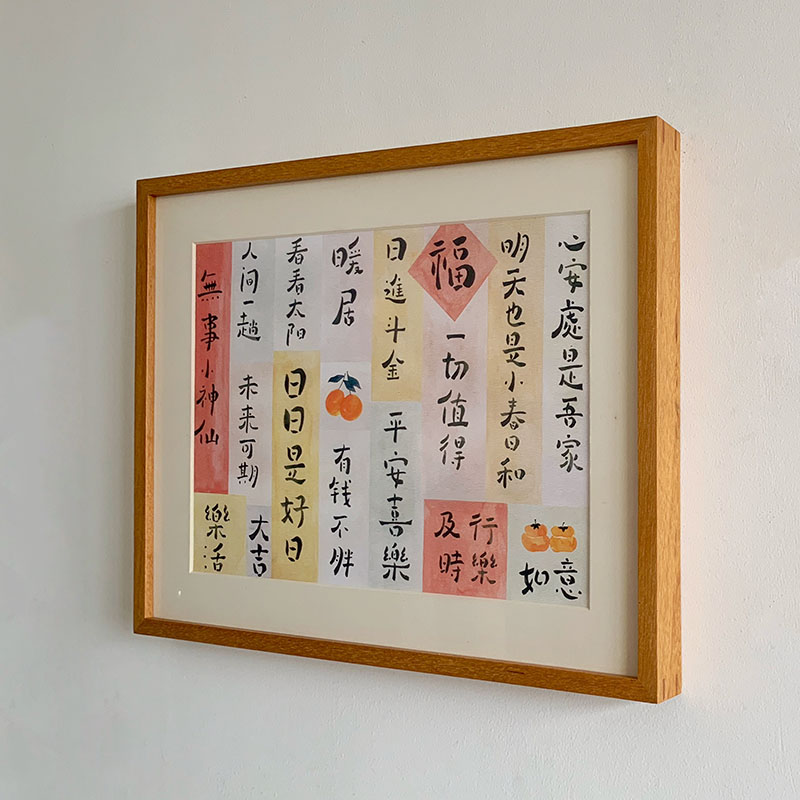 心安處是吾家
如意
明天也是小春日和
福
一切值得
行樂
及時
日進斗金
平安喜樂
暖居
有钱不胖
看看太阳
日日是好日
人间一趟
未来可期
大吉
無事小神仙
樂活